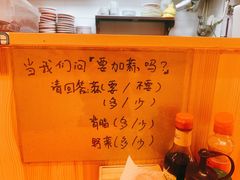 当我们问『要加素吗?』
请回答素(要/不要)
(多/少)
青脂(多/少)
野菜(多/少)